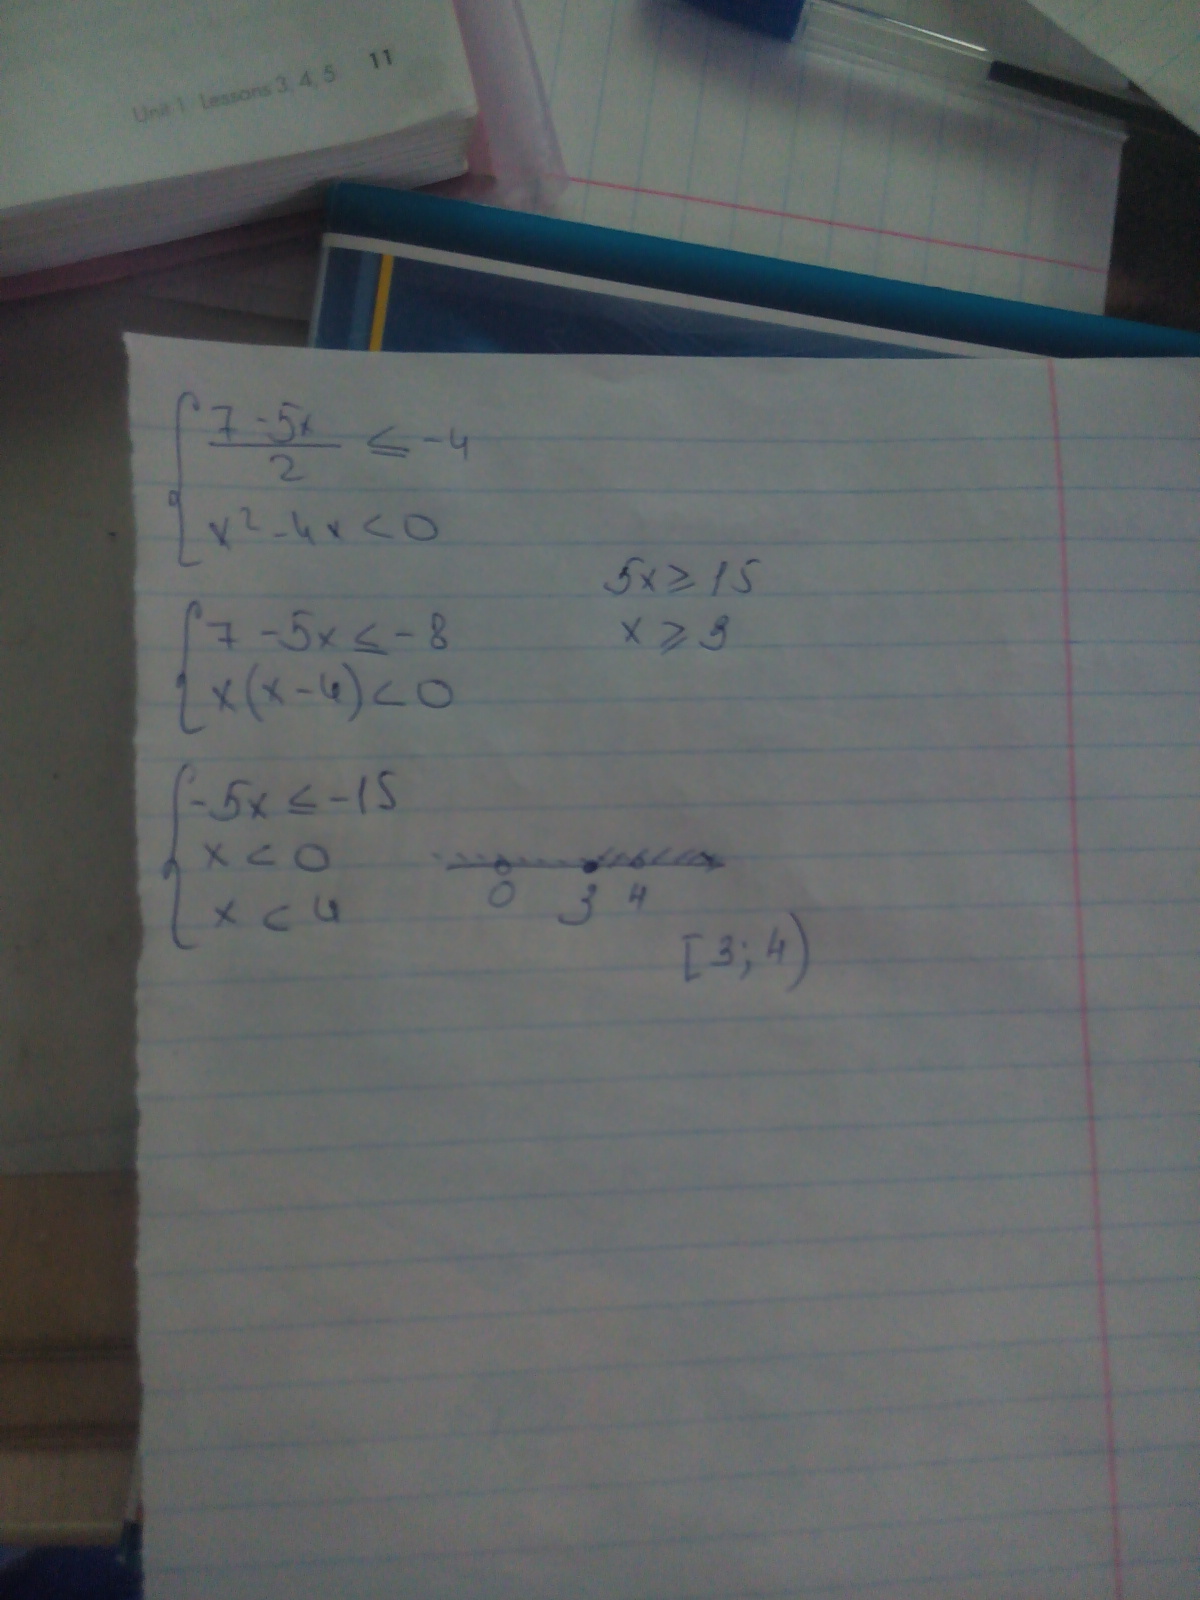 Unit 1 Lessons 3, 4, 5 11
7 - 5x
2
≤ -4
x² - 4x < 0
5x ≥ 15
7 - 5x ≤ -8
x ≥ 3
x(x - 4) < 0
-5x ≤ -15
x < 0
0 3 4
x < 4
[3; 4)